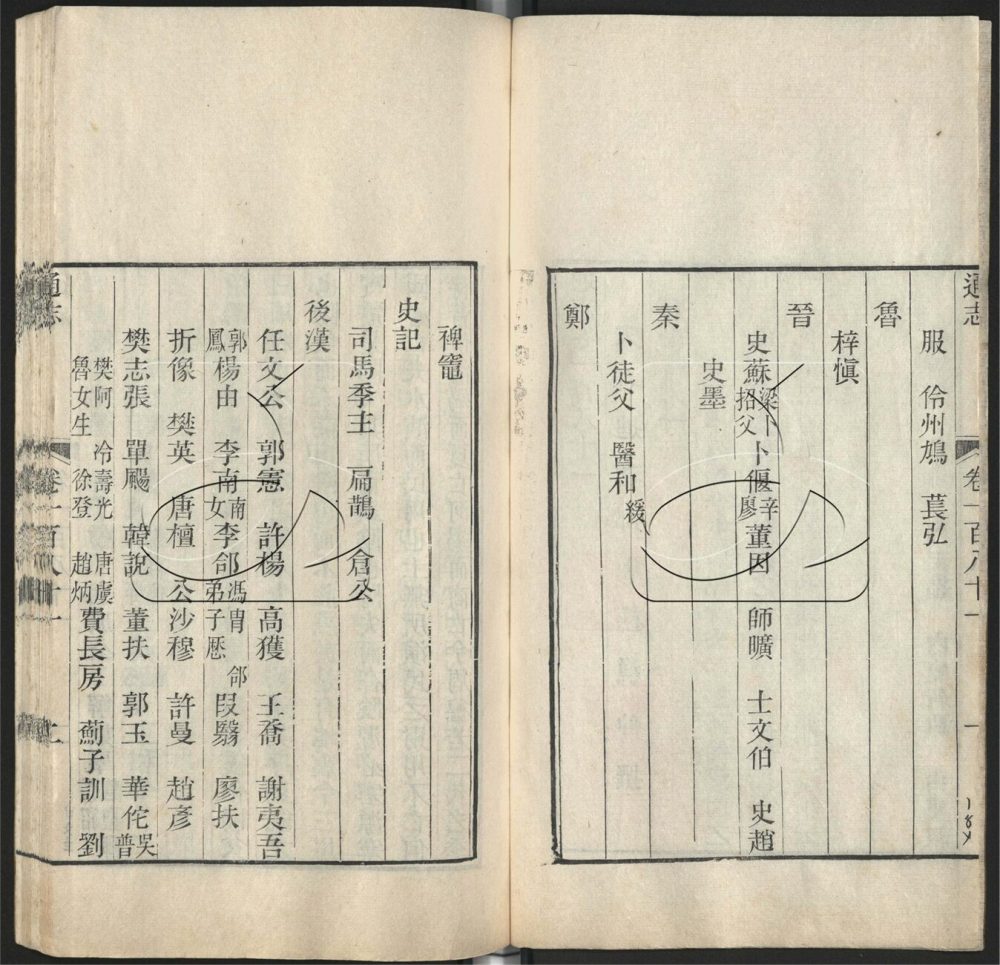 通志 卷一百八十一 一
服 伶州鳩 萇弘
魯
梓慎
晉
史蘇 梁卜招父 卜偃 辛廖 董因 師曠 士文伯 史趙
史墨
秦
卜徒父 醫和 緩
鄭
裨竈
史記
司馬季主 扁鵲 倉公
後漢
任文公 郭憲 許楊 高獲 王喬 謝夷吾
郭鳳 楊由 李南 南女 李郃 馮冑 郃弟子歷 段翳 廖扶
折像 樊英 唐檀 公沙穆 許曼 趙彥
樊志張 單颺 韓說 董扶 郭玉 華佗 吳普
樊阿 冷壽光 唐虞 魯女生 徐登 趙炳 費長房 薊子訓 劉
通志 卷一百八十一